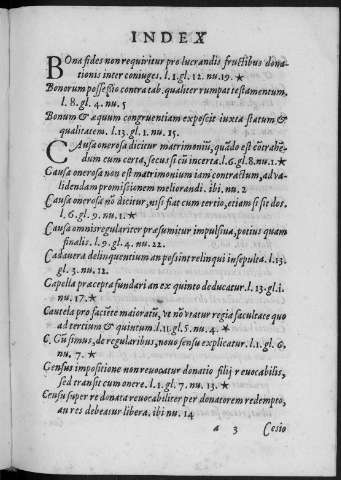 INDEX
BOna fides non requiritur pro lucrandis fructibus dona-
tionis inter coniuges. l.1.gl.12.nu.19.★
Bonorum possessio contra tab. qualiter rumpat testamentum.
l.8.gl.4.nu.5
Bonum & æquum congruentiam exposcit iuxta statum &
qualitatem. l.13.gl.1.nu.15.
CAusa onerosa dicitur matrimonium, quãdo est cũtrahẽ-
dum cum certa, secus si cũ incerta. l.6.gl.8.nu.1.★
Causa onerosa non est matrimonium iam contractum, ad va-
lidendam promissionem meliorandi. ibi.nu.2
Causa onerosa nõ dicitur, nisi fiat cum tertio, etiam si sit dos.
l.6.gl.9.nu.1.★
Causa omnis regulariter præsumitur impulsiua, potius quam
finalis. l.9.gl.4.nu.22.
Cadauera delinquentium an possint relinqui insepulta. l.13.
gl.3.nu.12.
Capella præcepta fundari an ex quinto deducatur. l.13.gl.i.
nu.17.★
Cautela pro faciẽte maioratũ, vt nõ vtatur regia facultate quo
ad tertium & quintum. l.11.gl.5.nu.4.★
C. Cũ simus, de regularibus, nouo sensu explicatur. l.1.gl.6.
nu.7.★
Census impositione non reuocatur donatio filij reuocabilis,
sed transit cum onere. l.1.gl.7.nu.13.★
Cẽsu super re donata reuocabiliter per donatorem redempto,
an res debeatur libera. ibi nu.14
a 3 Cesio